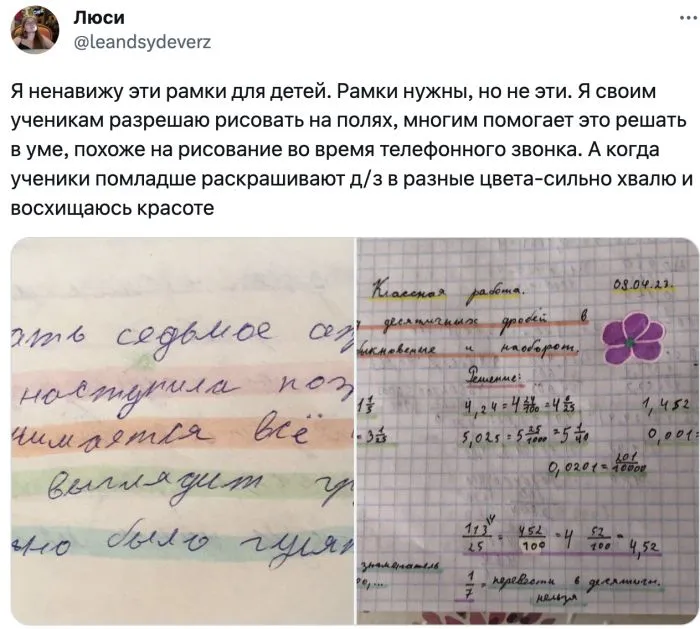 Люси
@leandsydeverz
Я ненавижу эти рамки для детей. Рамки нужны, но не эти. Я своим
ученикам разрешаю рисовать на полях, многим помогает это решать
в уме, похоже на рисование во время телефонного звонка. А когда
ученики помладше раскрашивают д/з в разные цвета-сильно хвалю и
восхищаюсь красоте
ать седьмое
наступила поз
нимается всё
выглядит гр
но было гулят
Классная работа. 08.04.23.
десятичных дробей в
быкновенные и наоборот.
Решение:
4,24=4 24/100=4 6/25 1,452
3 1/25 5,025=5 25/1000=5 1/40 0,001=
0,0201=201/10000
113/25 = 452/100 = 4 52/100 = 4,52
знаменатель
1/7 = перевести в десятичн.
нельзя